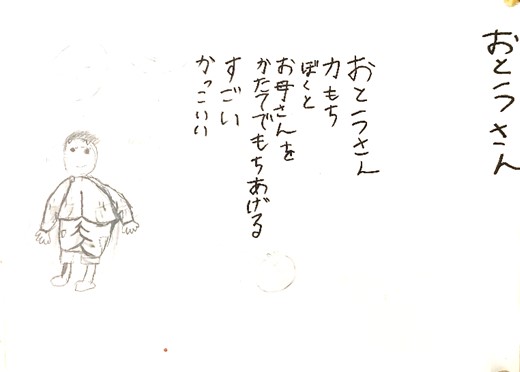 おとうさん
おとうさん
力もち
ぼくと
お母さんを
かたてでもちあげる
すごい
かっこいい